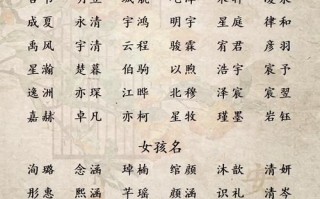 成夏 永清 宇鸿 明宇 星庭 律和
禹风 宇清 云程 骏霖 宥君 彦羽
星瀚 楚暮 伯驹 以煦 浩宇 宸予
逸洲 亦琛 江晔 北穆 泽宸 宸翌
嘉赫 卓凡 亦柯 星牧 瑾墨 岩钰
女孩名
洵璐 念涵 绾颜 沐歆 清妍
彤惠 熙涵 芊瑶 颜涵 识礼 清岑